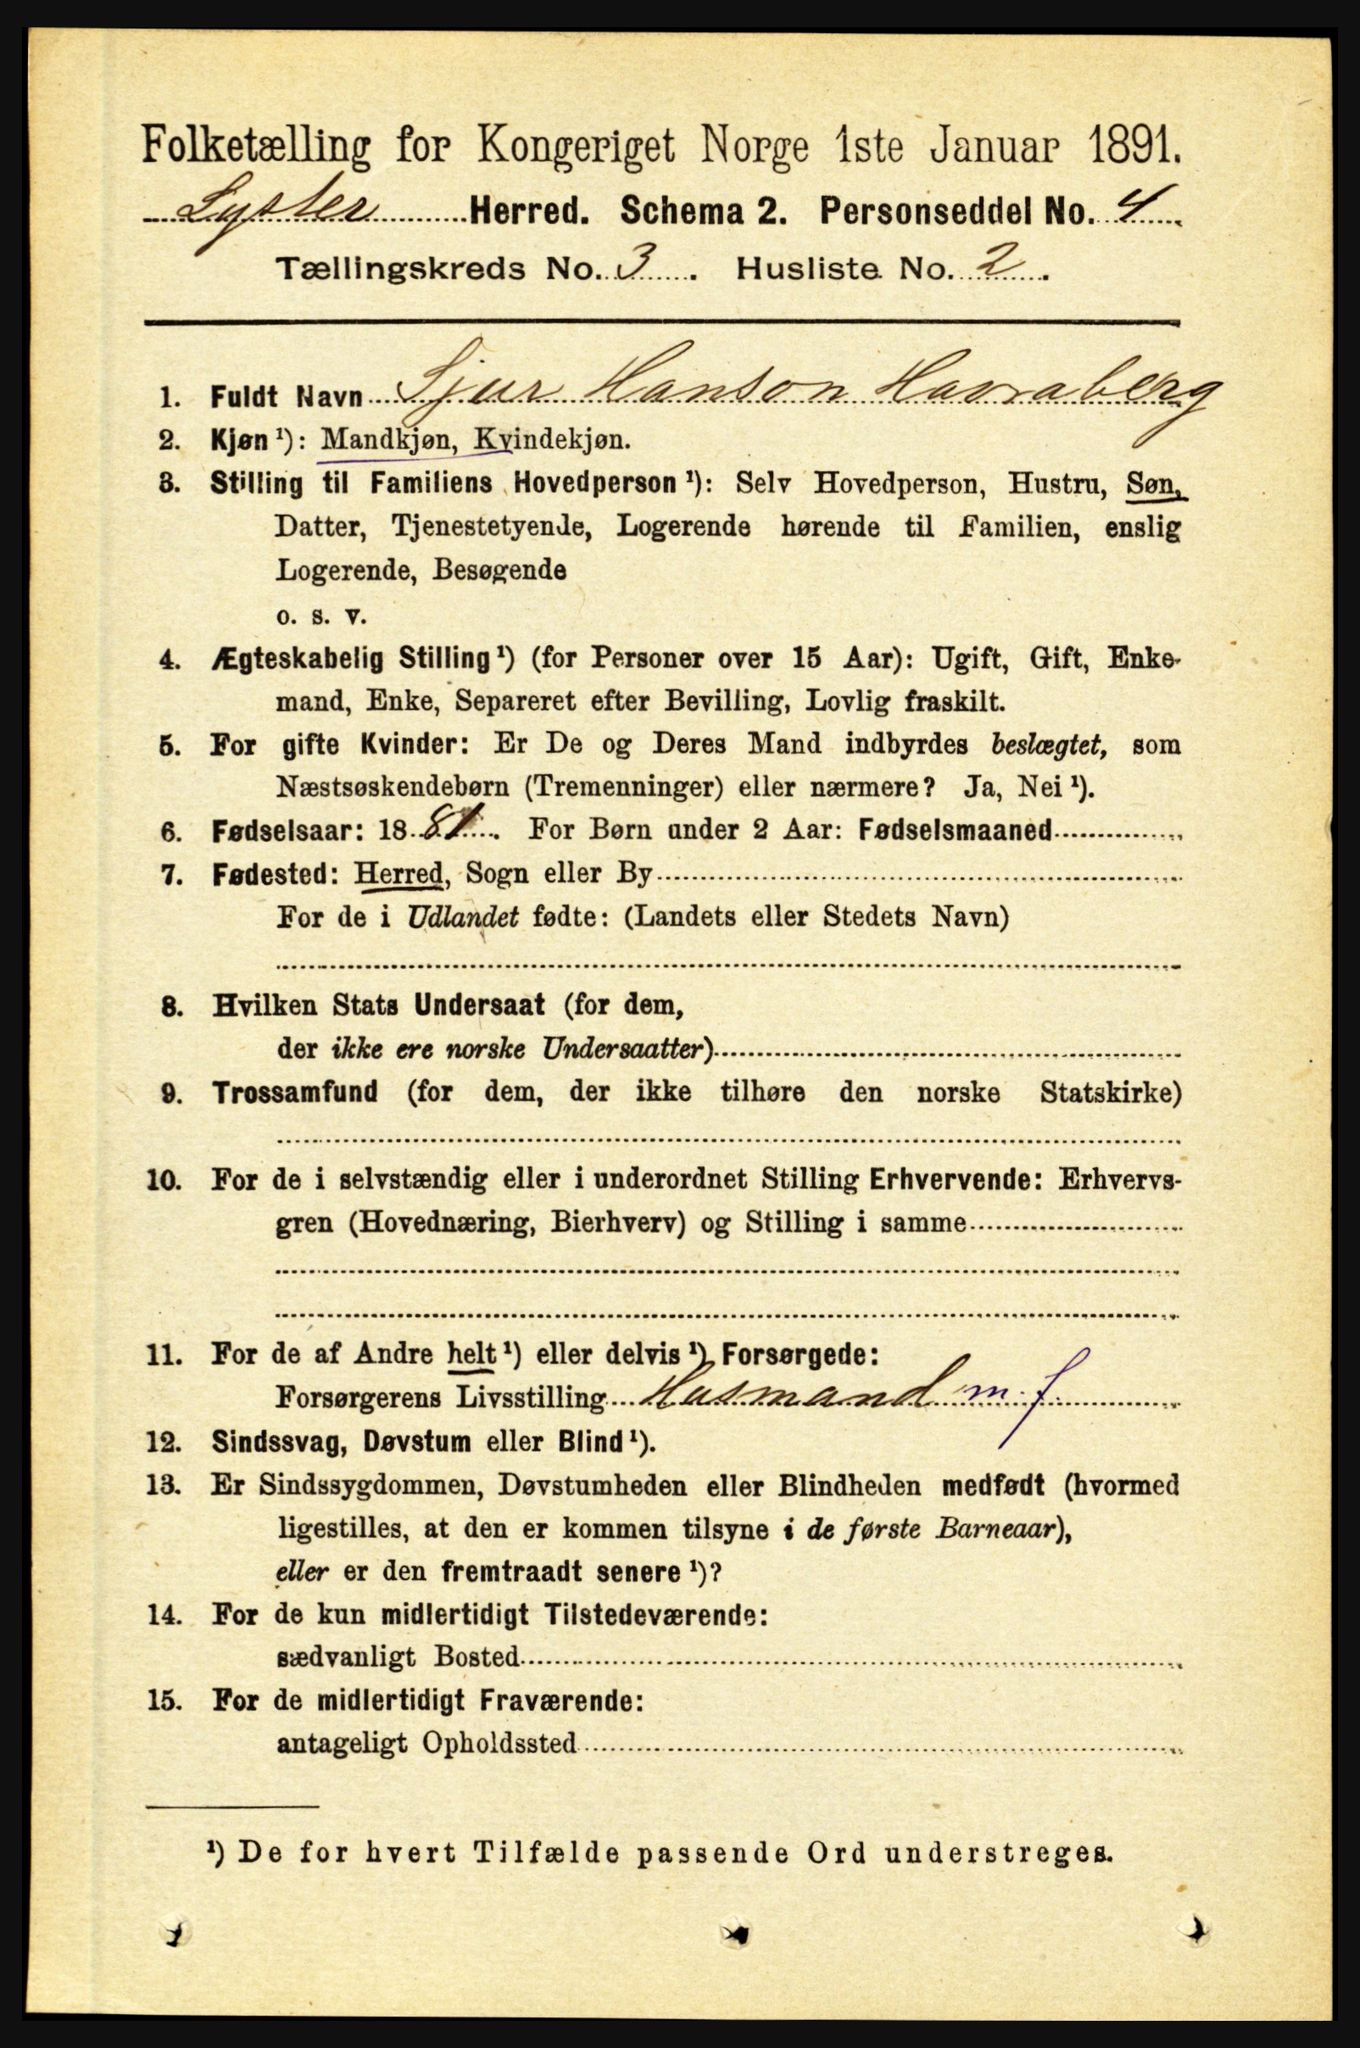 Folketælling for Kongeriget Norge 1ste Januar 1891.
Lyster Herred. Schema 2. Personseddel No. 4
Tællingskreds No. 3. Husliste No. 2.
1. Fuldt Navn Sjur Hanson Havraberg
2. Kjøn¹): Mandkjøn, Kvindekjøn.
3. Stilling til Familiens Hovedperson¹): Selv Hovedperson, Hustru, Søn,
Datter, Tjenestetyende, Logerende hørende til Familien, enslig
Logerende, Besøgende
o. s. v.
4. Ægteskabelig Stilling¹) (for Personer over 15 Aar): Ugift, Gift, Enke-
mand, Enke, Separeret efter Bevilling, Lovlig fraskilt.
5. For gifte Kvinder: Er De og Deres Mand indbyrdes beslægtet, som
Næstsøskendebørn (Tremenninger) eller nærmere? Ja, Nei¹).
6. Fødselsaar: 1881. For Børn under 2 Aar: Fødselsmaaned
7. Fødested: Herred, Sogn eller By
For de i Udlandet fødte: (Landets eller Stedets Navn)
8. Hvilken Stats Undersaat (for dem,
der ikke ere norske Undersaatter)
9. Trossamfund (for dem, der ikke tilhøre den norske Statskirke)
10. For de i selvstændig eller i underordnet Stilling Erhvervende: Erhvervs-
gren (Hovednæring, Bierhverv) og Stilling i samme
11. For de af Andre helt¹) eller delvis¹) Forsørgede:
Forsørgerens Livsstilling Husmand m. j.
12. Sindssvag, Døvstum eller Blind¹).
13. Er Sindssygdommen, Døvstumheden eller Blindheden medfødt (hvormed
ligestilles, at den er kommen tilsyne i de første Barneaar),
eller er den fremtraadt senere¹)?
14. For de kun midlertidigt Tilstedeværende:
sædvanligt Bosted
15. For de midlertidigt Fraværende:
antageligt Opholdssted
¹) De for hvert Tilfælde passende Ord understreges.